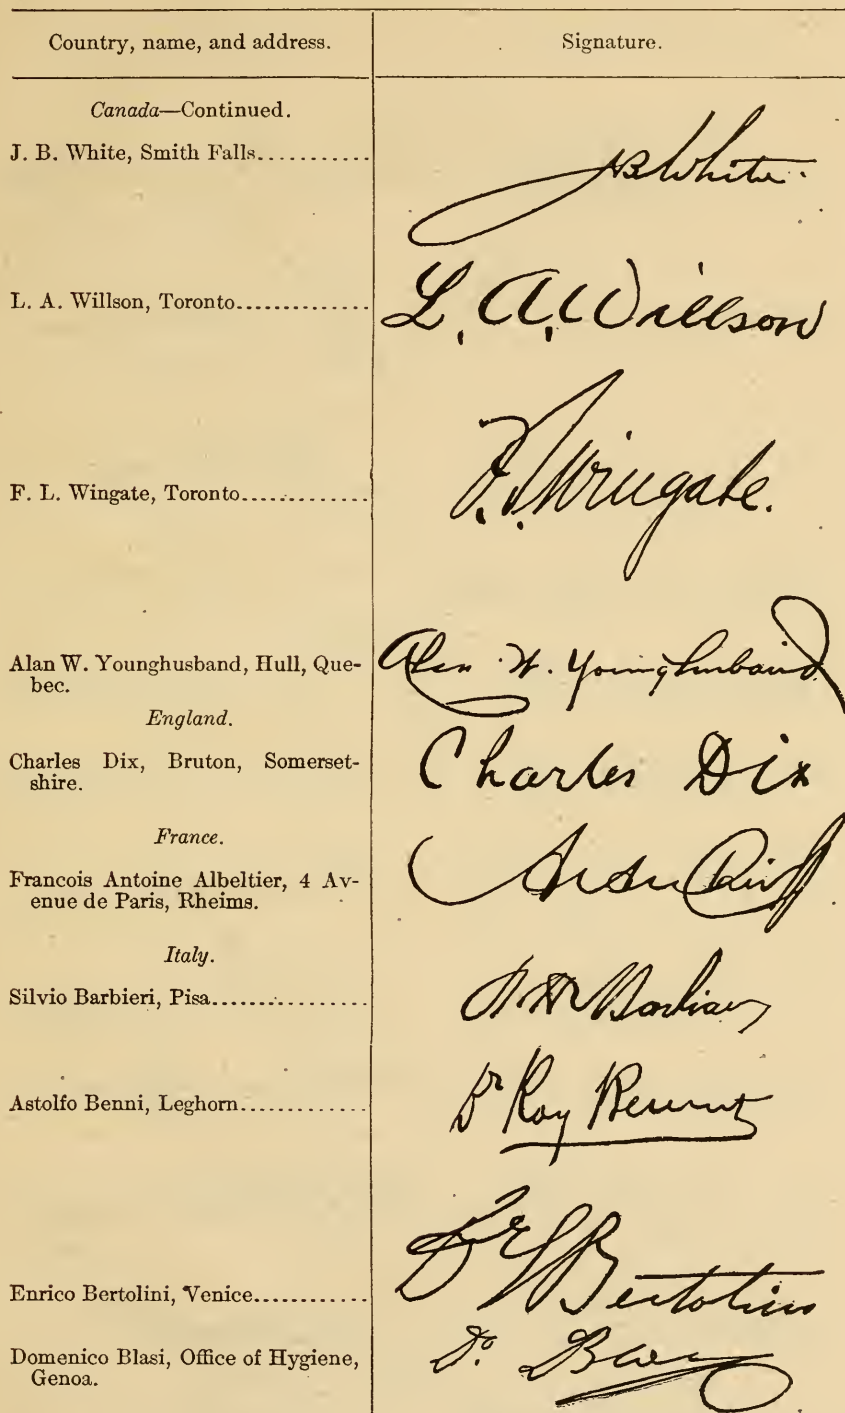 Country, name, and address. Signature.
Canada—Continued.
J. B. White, Smith Falls........... JB White.
L. A. Willson, Toronto.............. L. A. Willson
F. L. Wingate, Toronto.............. F. L. Wingate.
Alan W. Younghusband, Hull, Que- Alan W. Younghusband
bec.
England.
Charles Dix, Bruton, Somerset- Charles Dix
shire.
France.
Francois Antoine Albeltier, 4 Av-
enue de Paris, Rheims.
Italy.
Silvio Barbieri, Pisa................
Astolfo Benni, Leghorn............. Dr
Enrico Bertolini, Venice............ Dr E Bertolini
Domenico Blasi, Office of Hygiene, D.
Genoa.